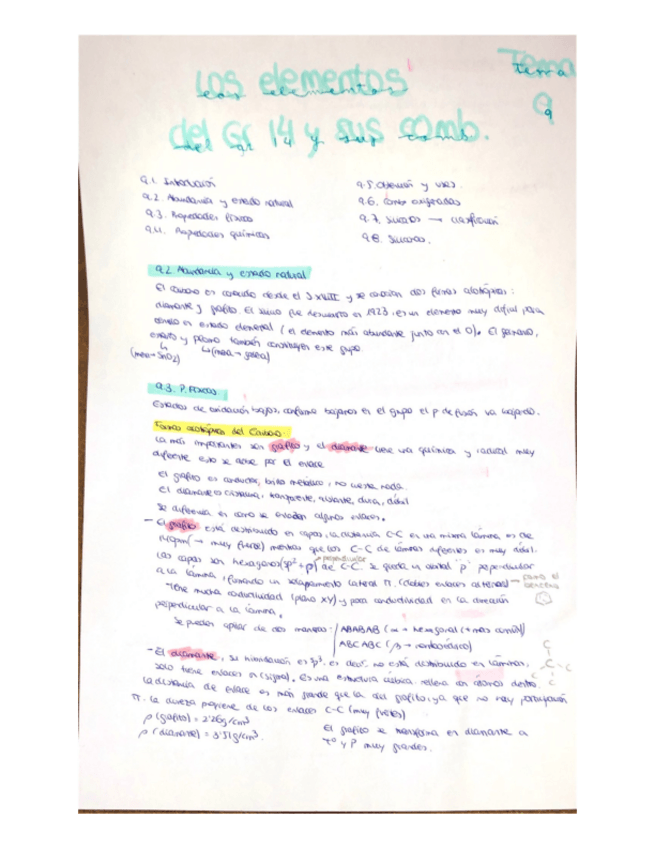 Los elementos
Tema
9
del Gr 14 y sus comb.
9.1. Introducción
9.2. Abundancia y estado natural
9.3. Propiedades físicas
9.4. Propiedades químicas
9.5. Obtención y usos.
9.6. Comb oxigenadas
9.7. Silicatos → clasificación
9.8. Siliconas.
9.2 Abundancia y estado natural
El carbono es conocido desde el S XVIII y se conocían dos formas alotrópicas:
diamante y grafito. El silicio fue descubierto en 1923, es un elemento muy difícil para
obtener en estado elemental (el elemento más abundante junto con el O). El germanio,
estaño y plomo también constituyen este grupo
(mena → SnO2) (mena → galena)
9.3. P. Físicas.
Estados de oxidación bajos, conforme bajamos en el grupo el p de fusión va bajando.
Formas alotrópicas del Carbono.
La más importantes son grafito y el diamante tiene una química y reactividad muy
diferente esto se debe por el enlace
El grafito es conductor, brillo metálico, no cuesta nada.
El diamante es cristalino, transparente, aislante, dura, difícil
Se diferencia en como se enlazan algunos enlaces.
- El grafito está distribuido en capas, la distancia C-C en una misma lámina es de
(→ muy fuerte) mientras que los C-C de láminas diferentes es muy débil.
Las capas son hexágonos (sp² + p) de C-C. Se queda un orbital 'p' perpendicular
perpendicular
a la lámina, formando un solapamiento lateral π. (dobles enlaces alternos) → como el
benceno
Tiene mucha conductividad (plano XY) y poca conductividad en la dirección
perpendicular a la lámina.
Se pueden apilar de dos maneras: ABABAB (α → hexagonal (+ más común))
ABCABC (β → romboédrico)
- El diamante, su hibridación es sp³. es decir, no está distribuido en láminas,
solo tiene enlaces σ (sigma), es una estructura cúbica. rellena con átomos dentro.
La distancia de enlace es más grande que la del grafito, ya que no hay participación
π. La dureza proviene de los enlaces C-C (muy fuertes)
ρ (grafito) = 2'26 g/cm³
ρ (diamante) = 3'51 g/cm³.
El grafito se transforma en diamante a
Tº y P muy grandes.